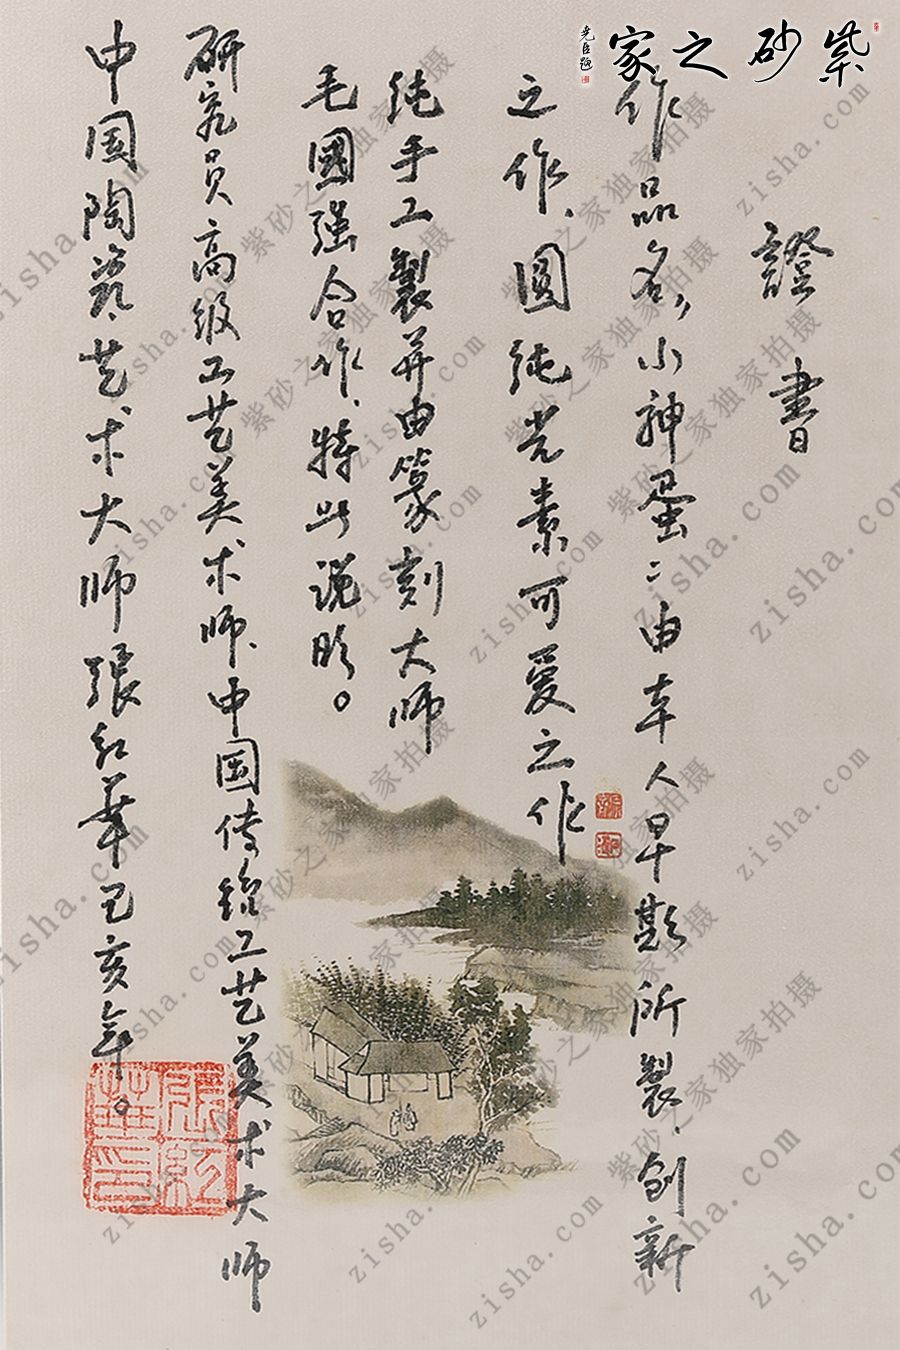 紫砂之家
尧臣题
證書
作品名,小神蛋:由本人早期所製、创新
之作、圆纯光素可爱之作
纯手工製并由篆刻大师
毛國强合作、特此说明。
研究员高级工艺美术师、中国传统工艺美术大师
中国陶瓷艺术大师張红華己亥年。
張红華印
紫砂之家独家拍摄
zisha.com